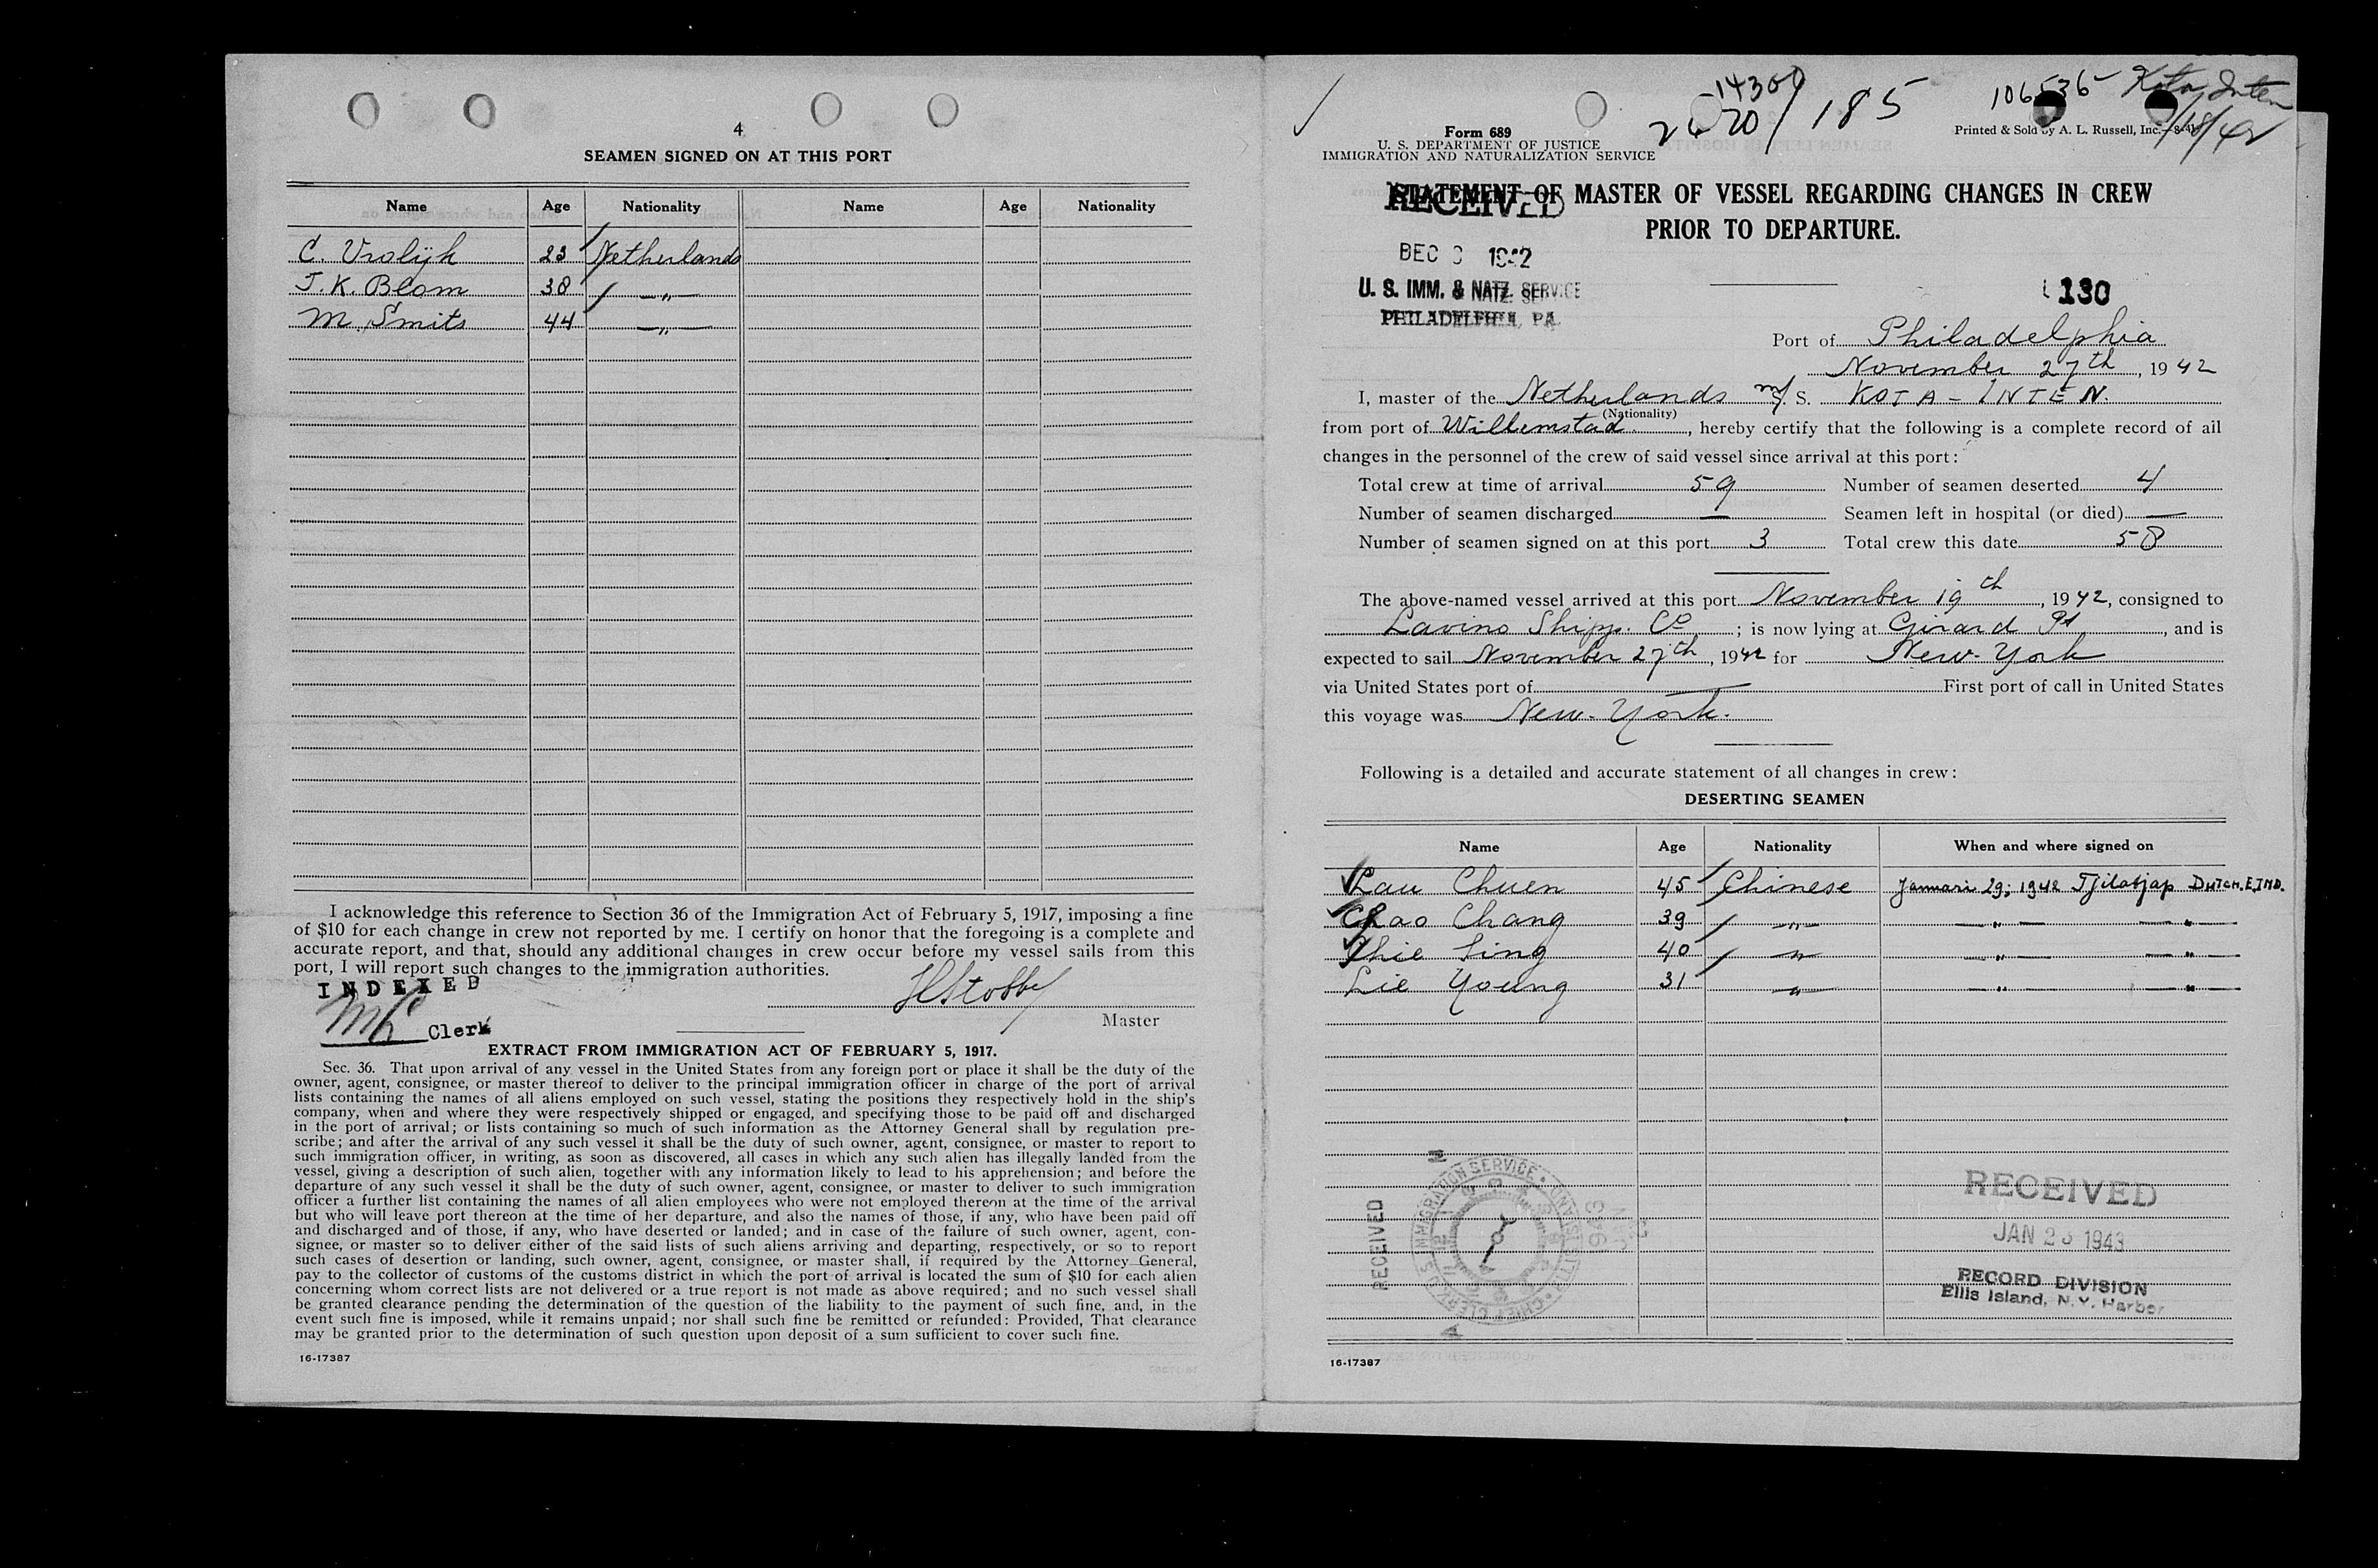 4
SEAMEN SIGNED ON AT THIS PORT
Name Age Nationality Name Age Nationality
C. Vrolijk 23 Netherlands
J. K. Blom 38 —„—
M. Smits 44 —„—
I acknowledge this reference to Section 36 of the Immigration Act of February 5, 1917, imposing a fine
of $10 for each change in crew not reported by me. I certify on honor that the foregoing is a complete and
accurate report, and that, should any additional changes in crew occur before my vessel sails from this
port, I will report such changes to the immigration authorities.
INDEXED
Clerk
Master
EXTRACT FROM IMMIGRATION ACT OF FEBRUARY 5, 1917.
Sec. 36. That upon arrival of any vessel in the United States from any foreign port or place it shall be the duty of the
owner, agent, consignee, or master thereof to deliver to the principal immigration officer in charge of the port of arrival
lists containing the names of all aliens employed on such vessel, stating the positions they respectively hold in the ship's
company, when and where they were respectively shipped or engaged, and specifying those to be paid off and discharged
in the port of arrival; or lists containing so much of such information as the Attorney General shall by regulation pre-
scribe; and after the arrival of any such vessel it shall be the duty of such owner, agent, consignee, or master to report to
such immigration officer, in writing, as soon as discovered, all cases in which any such alien has illegally landed from the
vessel, giving a description of such alien, together with any information likely to lead to his apprehension; and before the
departure of any such vessel it shall be the duty of such owner, agent, consignee, or master to deliver to such immigration
officer a further list containing the names of all alien employees who were not employed thereon at the time of the arrival
but who will leave port thereon at the time of her departure, and also the names of those, if any, who have been paid off
and discharged and of those, if any, who have deserted or landed; and in case of the failure of such owner, agent, con-
signee, or master so to deliver either of the said lists of such aliens arriving and departing, respectively, or so to report
such cases of desertion or landing, such owner, agent, consignee, or master shall, if required by the Attorney General,
pay to the collector of customs of the customs district in which the port of arrival is located the sum of $10 for each alien
concerning whom correct lists are not delivered or a true report is not made as above required; and no such vessel shall
be granted clearance pending the determination of the question of the liability to the payment of such fine, and, in the
event such fine is imposed, while it remains unpaid; nor shall such fine be remitted or refunded: Provided, That clearance
may be granted prior to the determination of such question upon deposit of a sum sufficient to cover such fine.
16-17387
14300
185
Kota Inten
Form 689
U. S. DEPARTMENT OF JUSTICE
IMMIGRATION AND NATURALIZATION SERVICE
Printed & Sold by A. L. Russell, Inc.
STATEMENT OF MASTER OF VESSEL REGARDING CHANGES IN CREW
PRIOR TO DEPARTURE.
RECEIVED
DEC 1942
U. S. IMM. & NATZ. SERVICE
PHILADELPHIA, PA.
130
Port of Philadelphia
November 27th, 1942
I, master of the Netherlands m/S. KOTA-INTEN.
(Nationality)
from port of Willemstad, hereby certify that the following is a complete record of all
changes in the personnel of the crew of said vessel since arrival at this port:
Total crew at time of arrival 59 Number of seamen deserted 4
Number of seamen discharged — Seamen left in hospital (or died) —
Number of seamen signed on at this port 3 Total crew this date 58
The above-named vessel arrived at this port November 19th, 1942, consigned to
Lavino Shipp. Co; is now lying at Girard Pt, and is
expected to sail November 27th, 1942 for New-York
via United States port of — First port of call in United States
this voyage was New-York.
Following is a detailed and accurate statement of all changes in crew:
DESERTING SEAMEN
Name Age Nationality When and where signed on
Lau Chuen 45 Chinese Januari 29; 1942 Tjilatjap DUTCH.E.IND.
Chao Chang 39 —„— —„— —„—
Thie Sing 40 —„— —„— —„—
Lie Young 31 —„— —„— —„—
RECEIVED
U.S. IMMIGRATION SERVICE
RECEIVED
JAN 1943
RECORD DIVISION
Ellis Island, N.Y. Harbor
16-17387